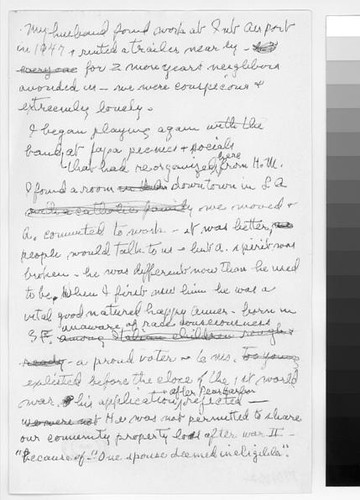 My husband found work at Int Airport
in 1947 & rented a trailer near by -
for 2 more years neighbors
avoided us - we were conspicuous &
extremely lonely.
I began playing again with the
band, at Japa picnics & socials
They had reorganized here from H.M.
I found a room downtown in L A
with a catholic family we moved &
A. commuted to work - it was better,
people would talk to us - but A. spirit was
broken - he was different now than he used
to be. When I first saw him he was a
vital good natured happy - born in
S.F. unaware of race consciousness
among Italian children rough &
ready - a proud voter - to me. Too young
enlisted before the close of the 1st world
war. his application after Pearl Harbor rejected -
we were not He was not permitted to share
our community property loss after war II -
"because of" "One spouse deemed ineligible".